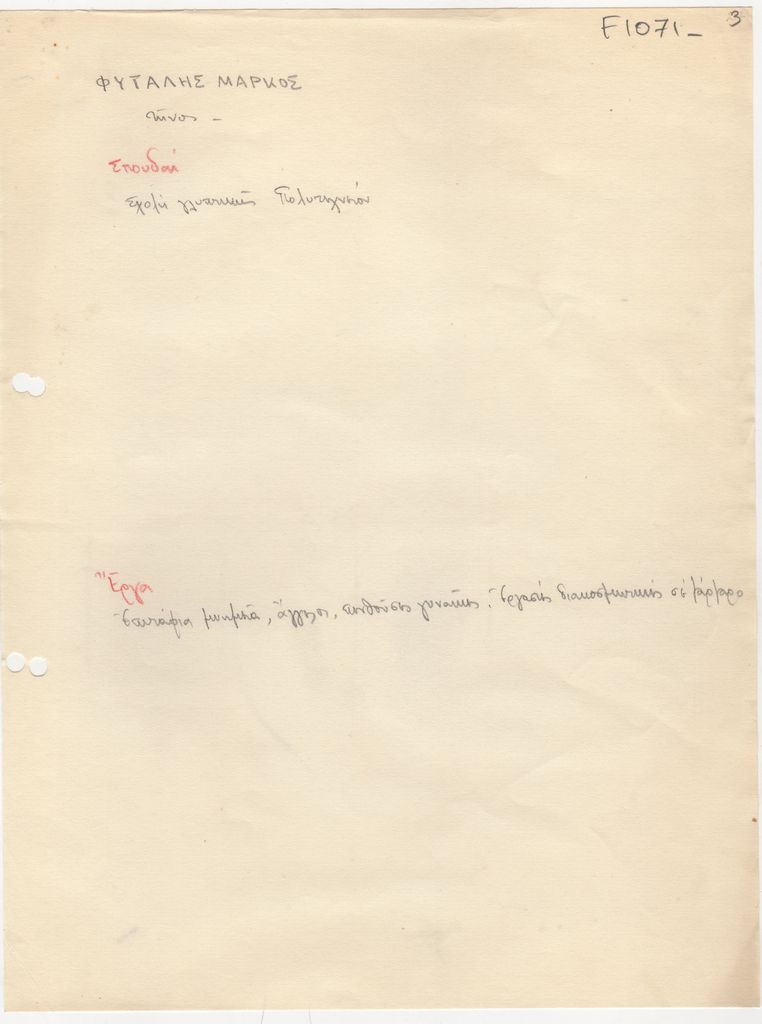 F1071- 3
ΦΥΤΑΛΗΣ ΜΑΡΚΟΣ
Τῆνος -
Σπουδαί
Σχολή γλυπτικῆς Πολυτεχνείου
Ἔργα
Ἐπιτάφια μνημεῖα, ἄγγελοι, πενθοῦσες γυναῖκες. Ἐργασίες διακοσμητικές σέ μάρμαρο